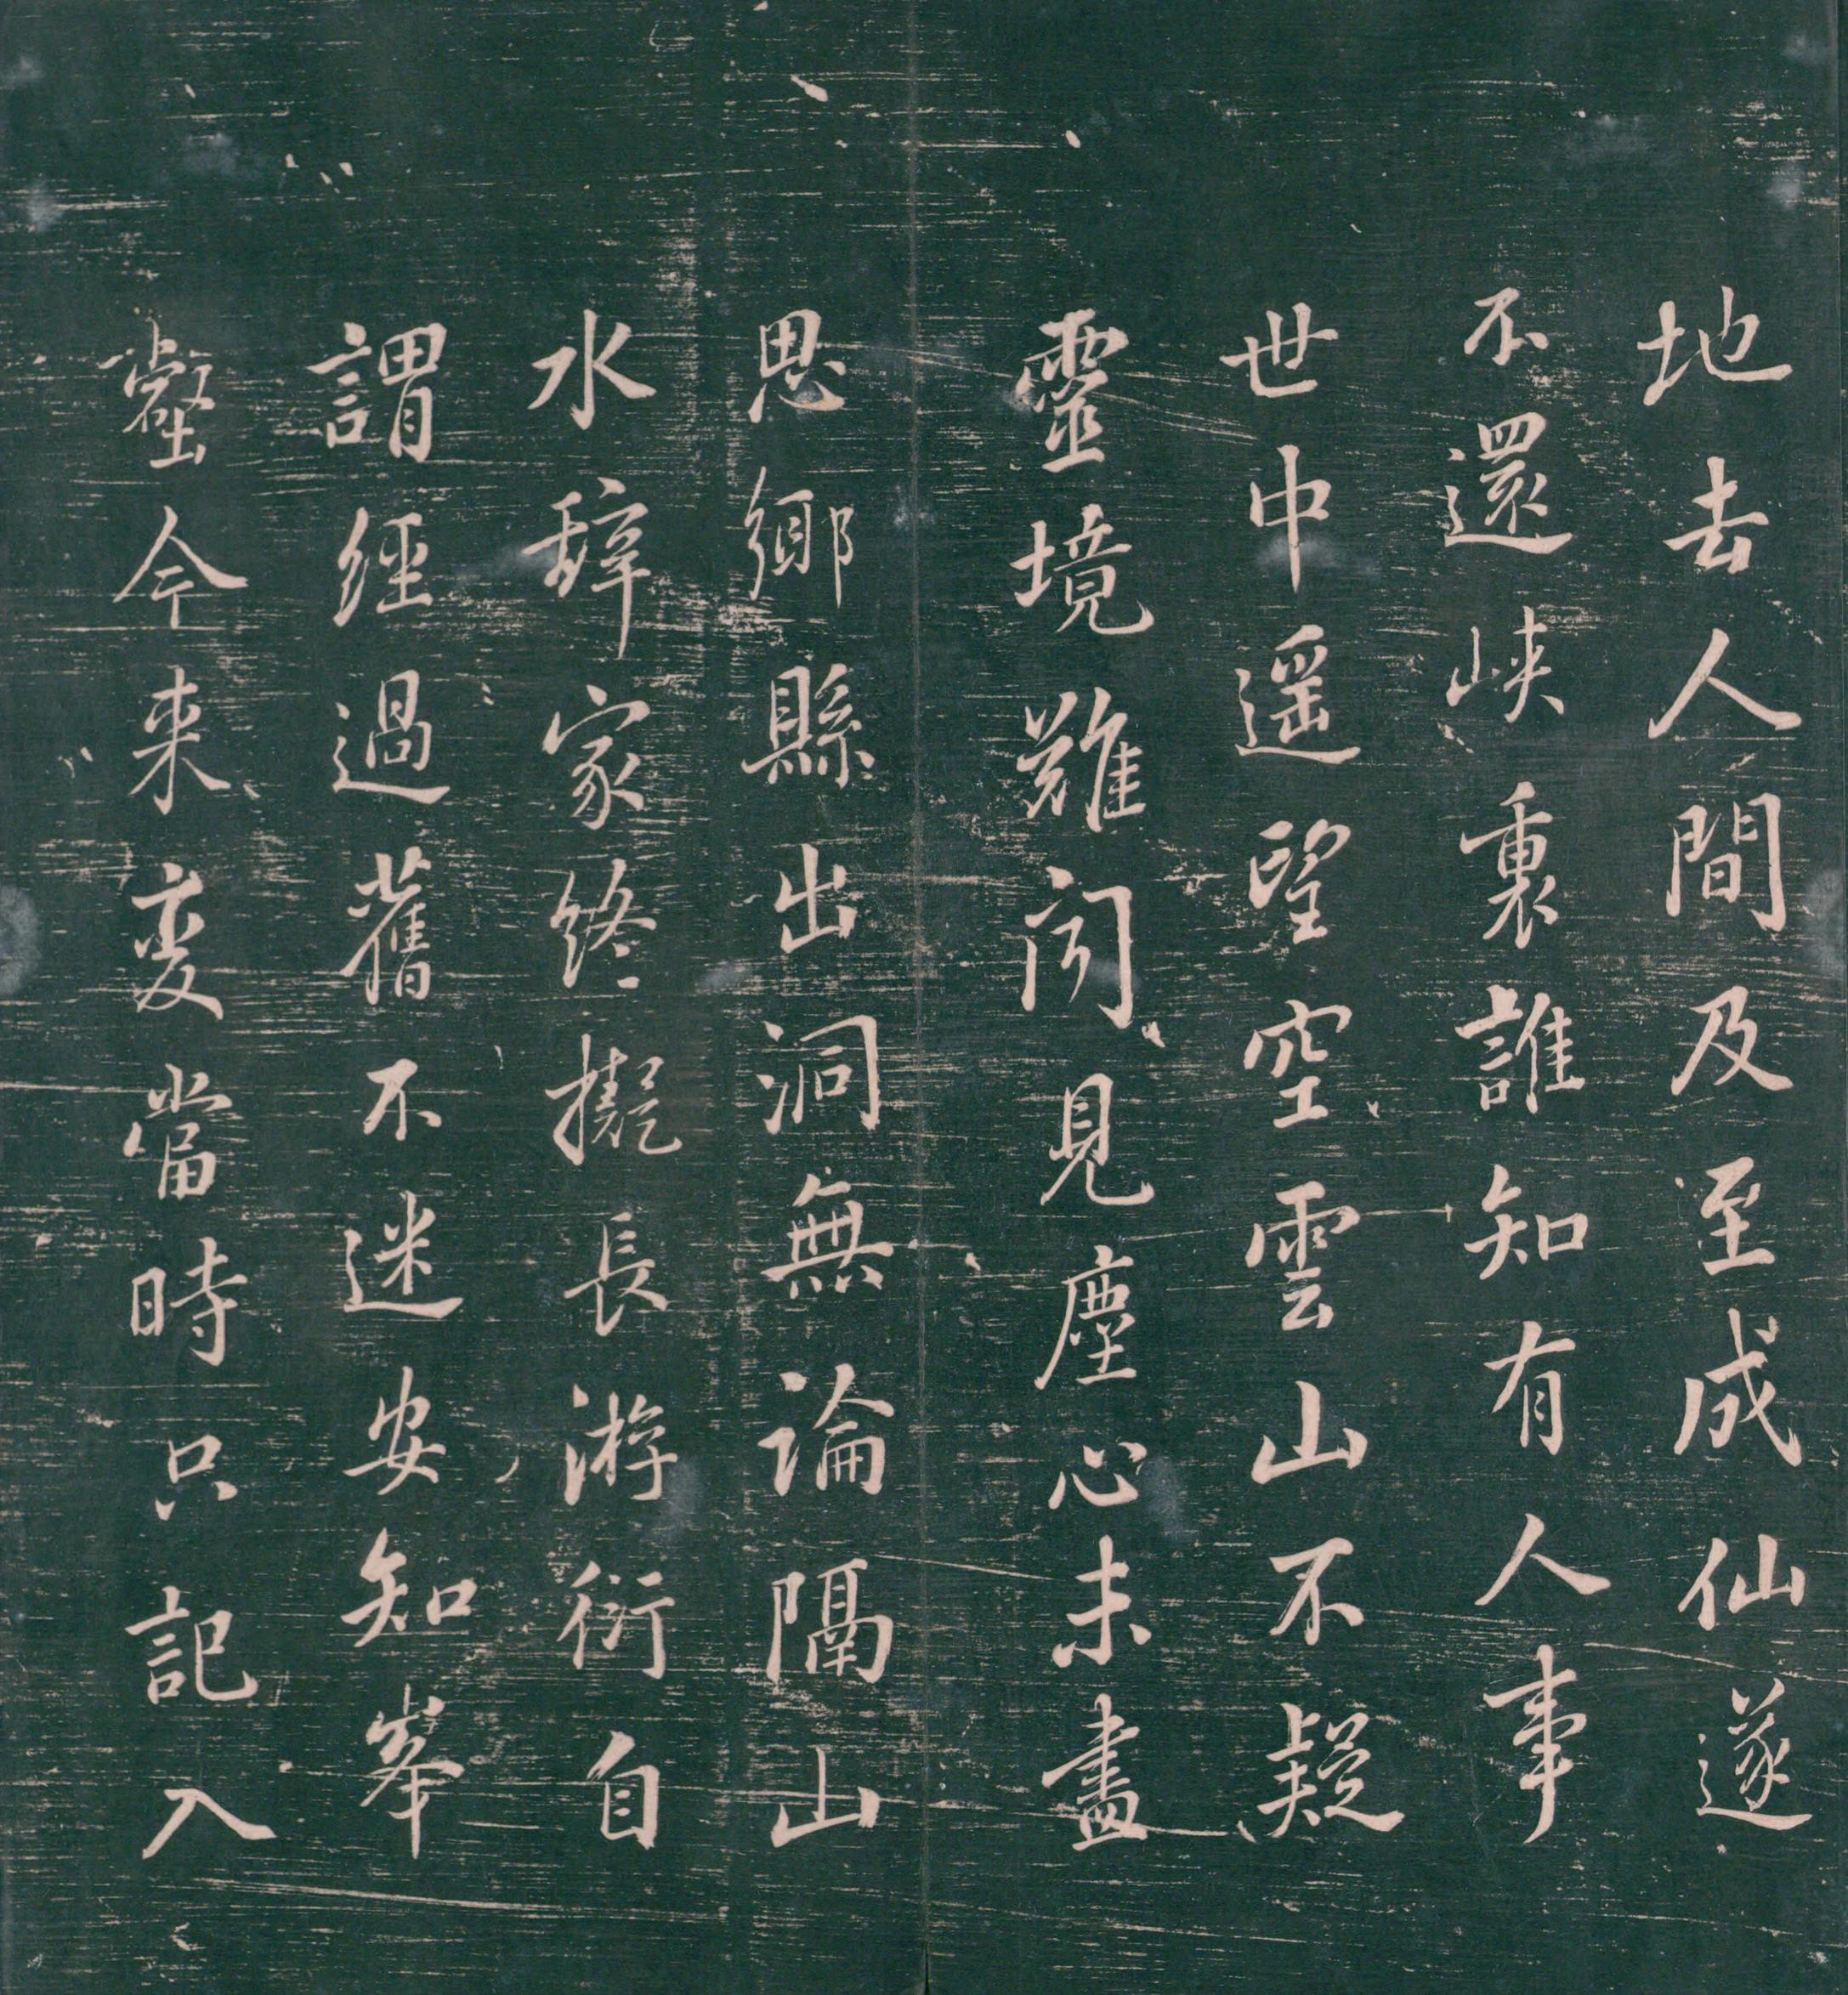 地去人間及至成仙遂
不還峽裏誰知有人事
世中遥望空雲山不疑
靈境難聞見塵心未盡
思鄉縣出洞無論隔山
水辭家終擬長游衍自
謂經過舊不迷安知峯
壑今来變當時只記入